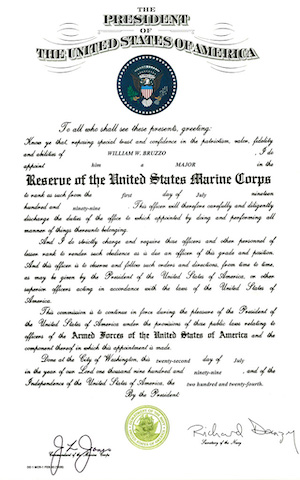 THE
PRESIDENT
OF
THE UNITED STATES OF AMERICA
To all who shall see these presents, greeting:
Know ye that, reposing special trust and confidence in the patriotism, valor, fidelity
and abilities of WILLIAM W. BRUZZO I do
appoint him a MAJOR in the
Reserve of the United States Marine Corps
to rank as such from the first day of July nineteen
hundred and ninety-nine This officer will therefore carefully and diligently
discharge the duties of the office to which appointed by doing and performing all
manner of things thereunto belonging.
And I do strictly charge and require those officers and other personnel of
lesser rank to render such obedience as is due an officer of this grade and position.
And this officer is to observe and follow such orders and directions, from time to time,
as may be given by the President of the United States of America, or other
superior officers acting in accordance with the laws of the United States of
America.
This commission is to continue in force during the pleasure of the President of
the United States of America under the provisions of those public laws relating to
officers of the Armed Forces of the United States of America and the
component thereof in which this appointment is made.
Done at the City of Washington, this twenty-second day of July
in the year of our Lord one thousand nine hundred and ninety-nine , and of the
Independence of the United States of America, the two hundred and twenty-fourth.
By the President
Richard Danzig
Secretary of the Navy
J. L. Jones
Commandant of the Marine Corps